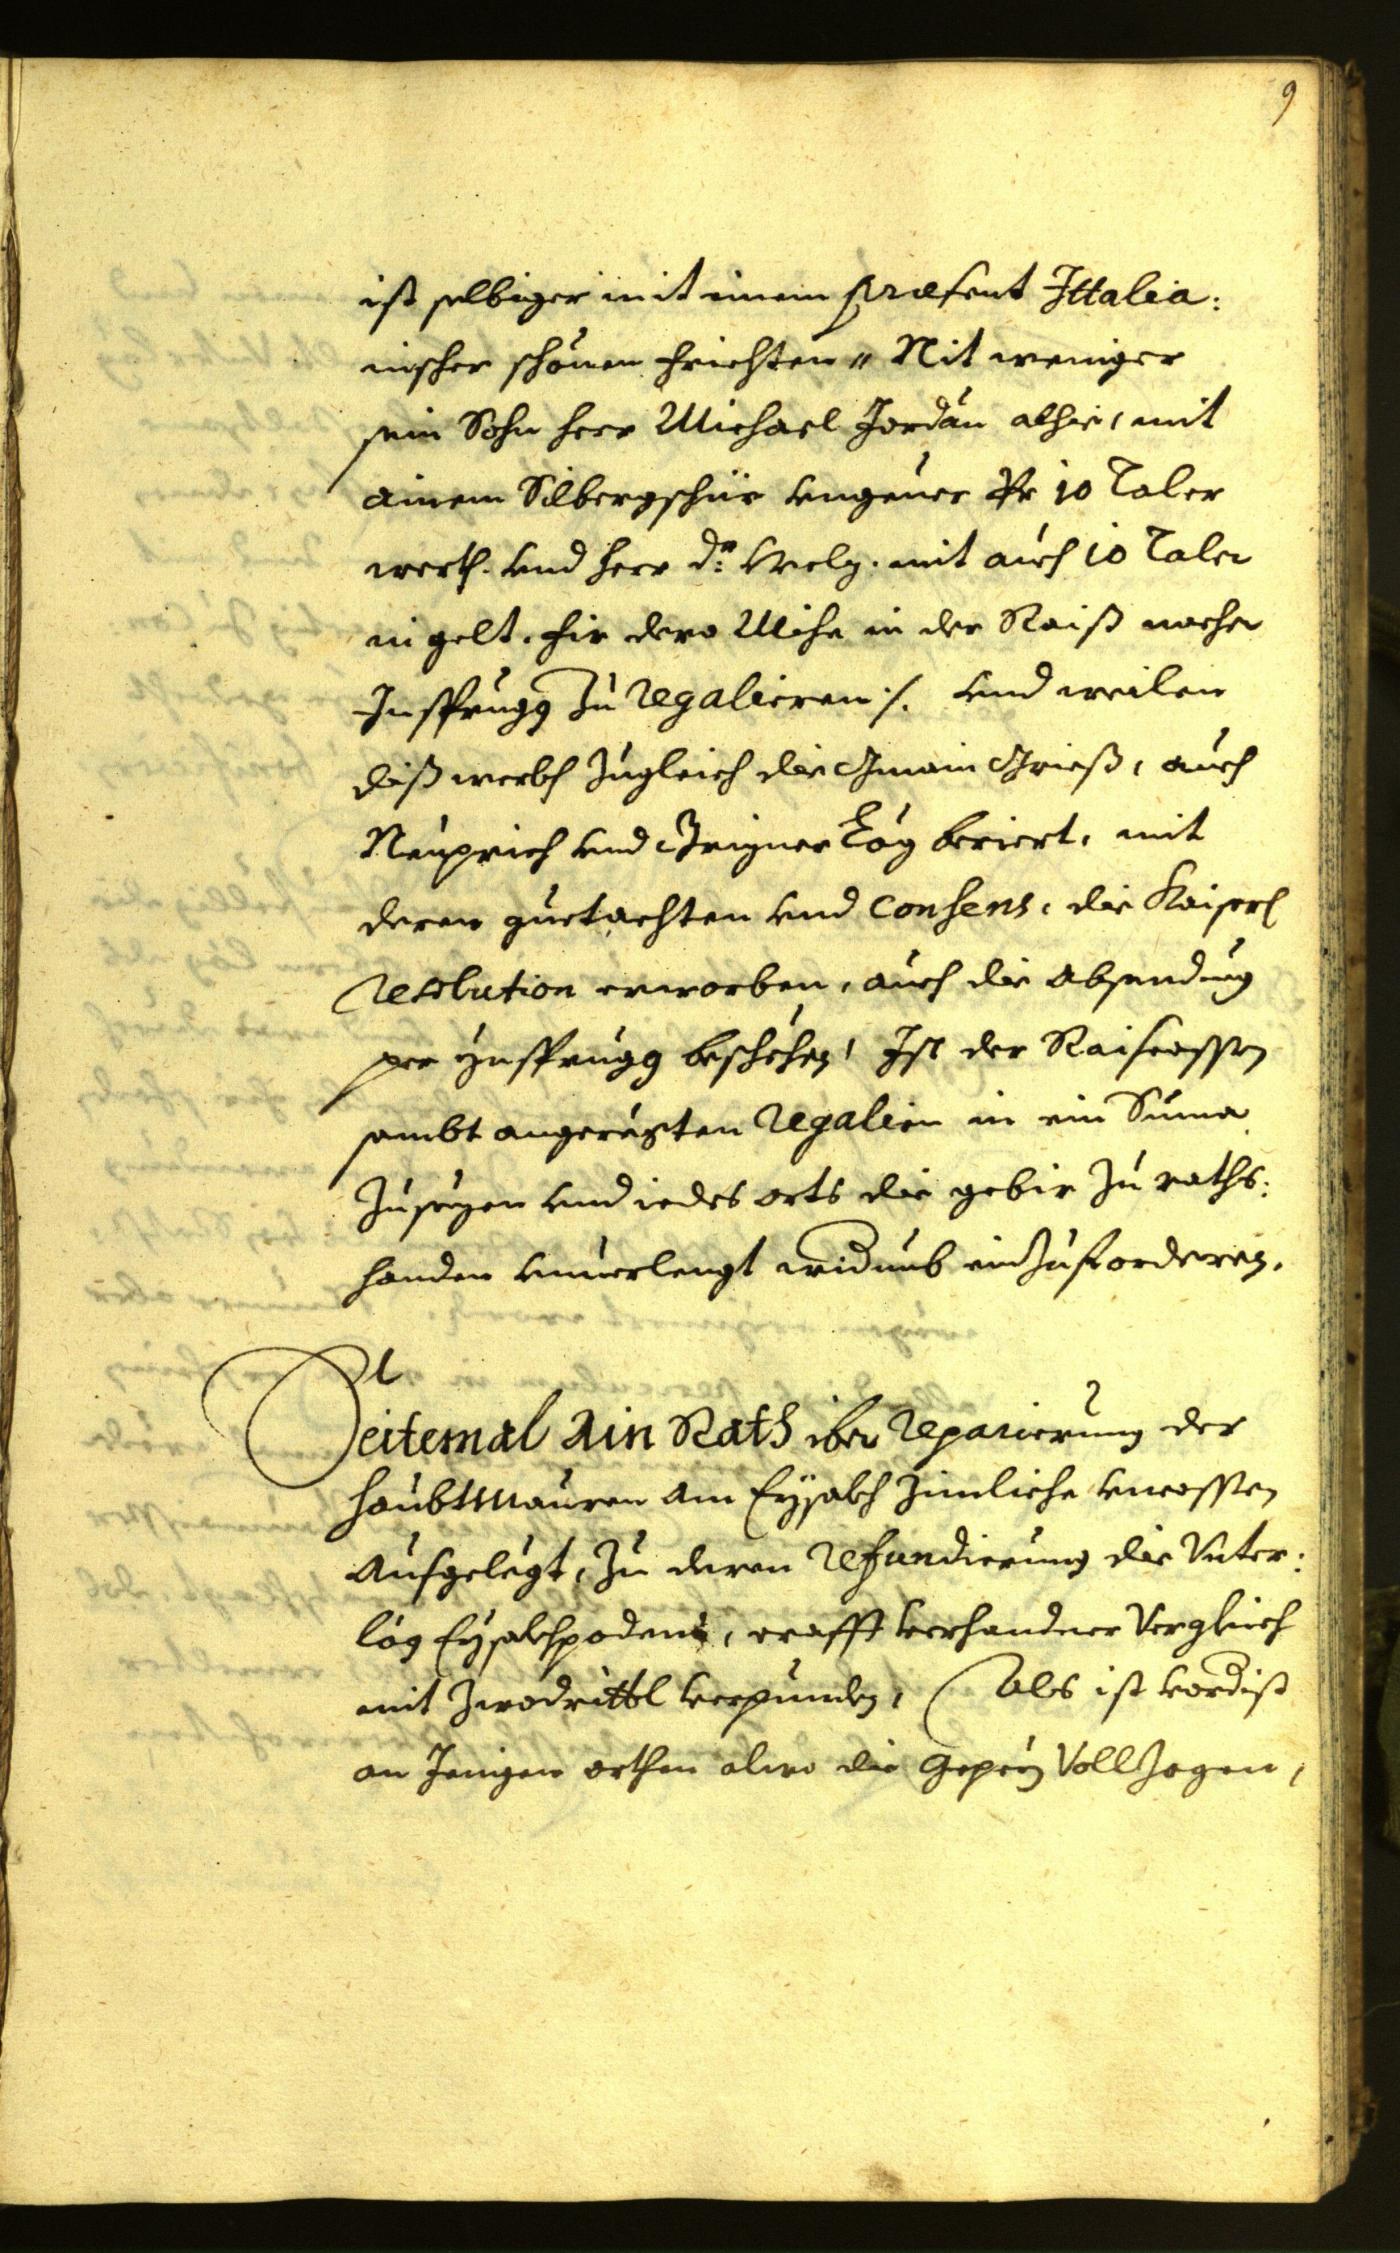 9
ist selbiger mit einem præsent Ittalia:
nischer schönen frichten /: Nit weniger
sein Sohn herr Michael Jordan alhie, mit
ainem Silbergschür vngeuer Pr 10 Taler
werth. vnd herr dr: mit auch 10 Taler
in gelt, fir dero Mihe in der Raiß nacher
Insprugg zu regalieren :/. vnd weilen
diß werch zugleich die Gmain Grieß, auch
Neuprich vnd Grigner Lög beriert, mit
deren guetachten vnd consens, die Kaiserl
resolution erworben, auch die absendung
per Ynsprugg beschehen, Ist der Raiscossten
sambt angeregten Regalien in ein Suma
zusezen vnd iedes orts die gebir zu raths:
handen vnuerlengt widumb einzuforderen.
Seitemal Ain Rath iber reparierung der
haubtmauren am Eysakh zimliche vncossten
Aufgelegt, zu deren refundierung die Vnter:
lög Eysakhpodens, crafft verhandner Vergleich
mit zwodrittl verpunden, Als ist vordist
an Jenigen orthen alwo die gepey Vollzogen,